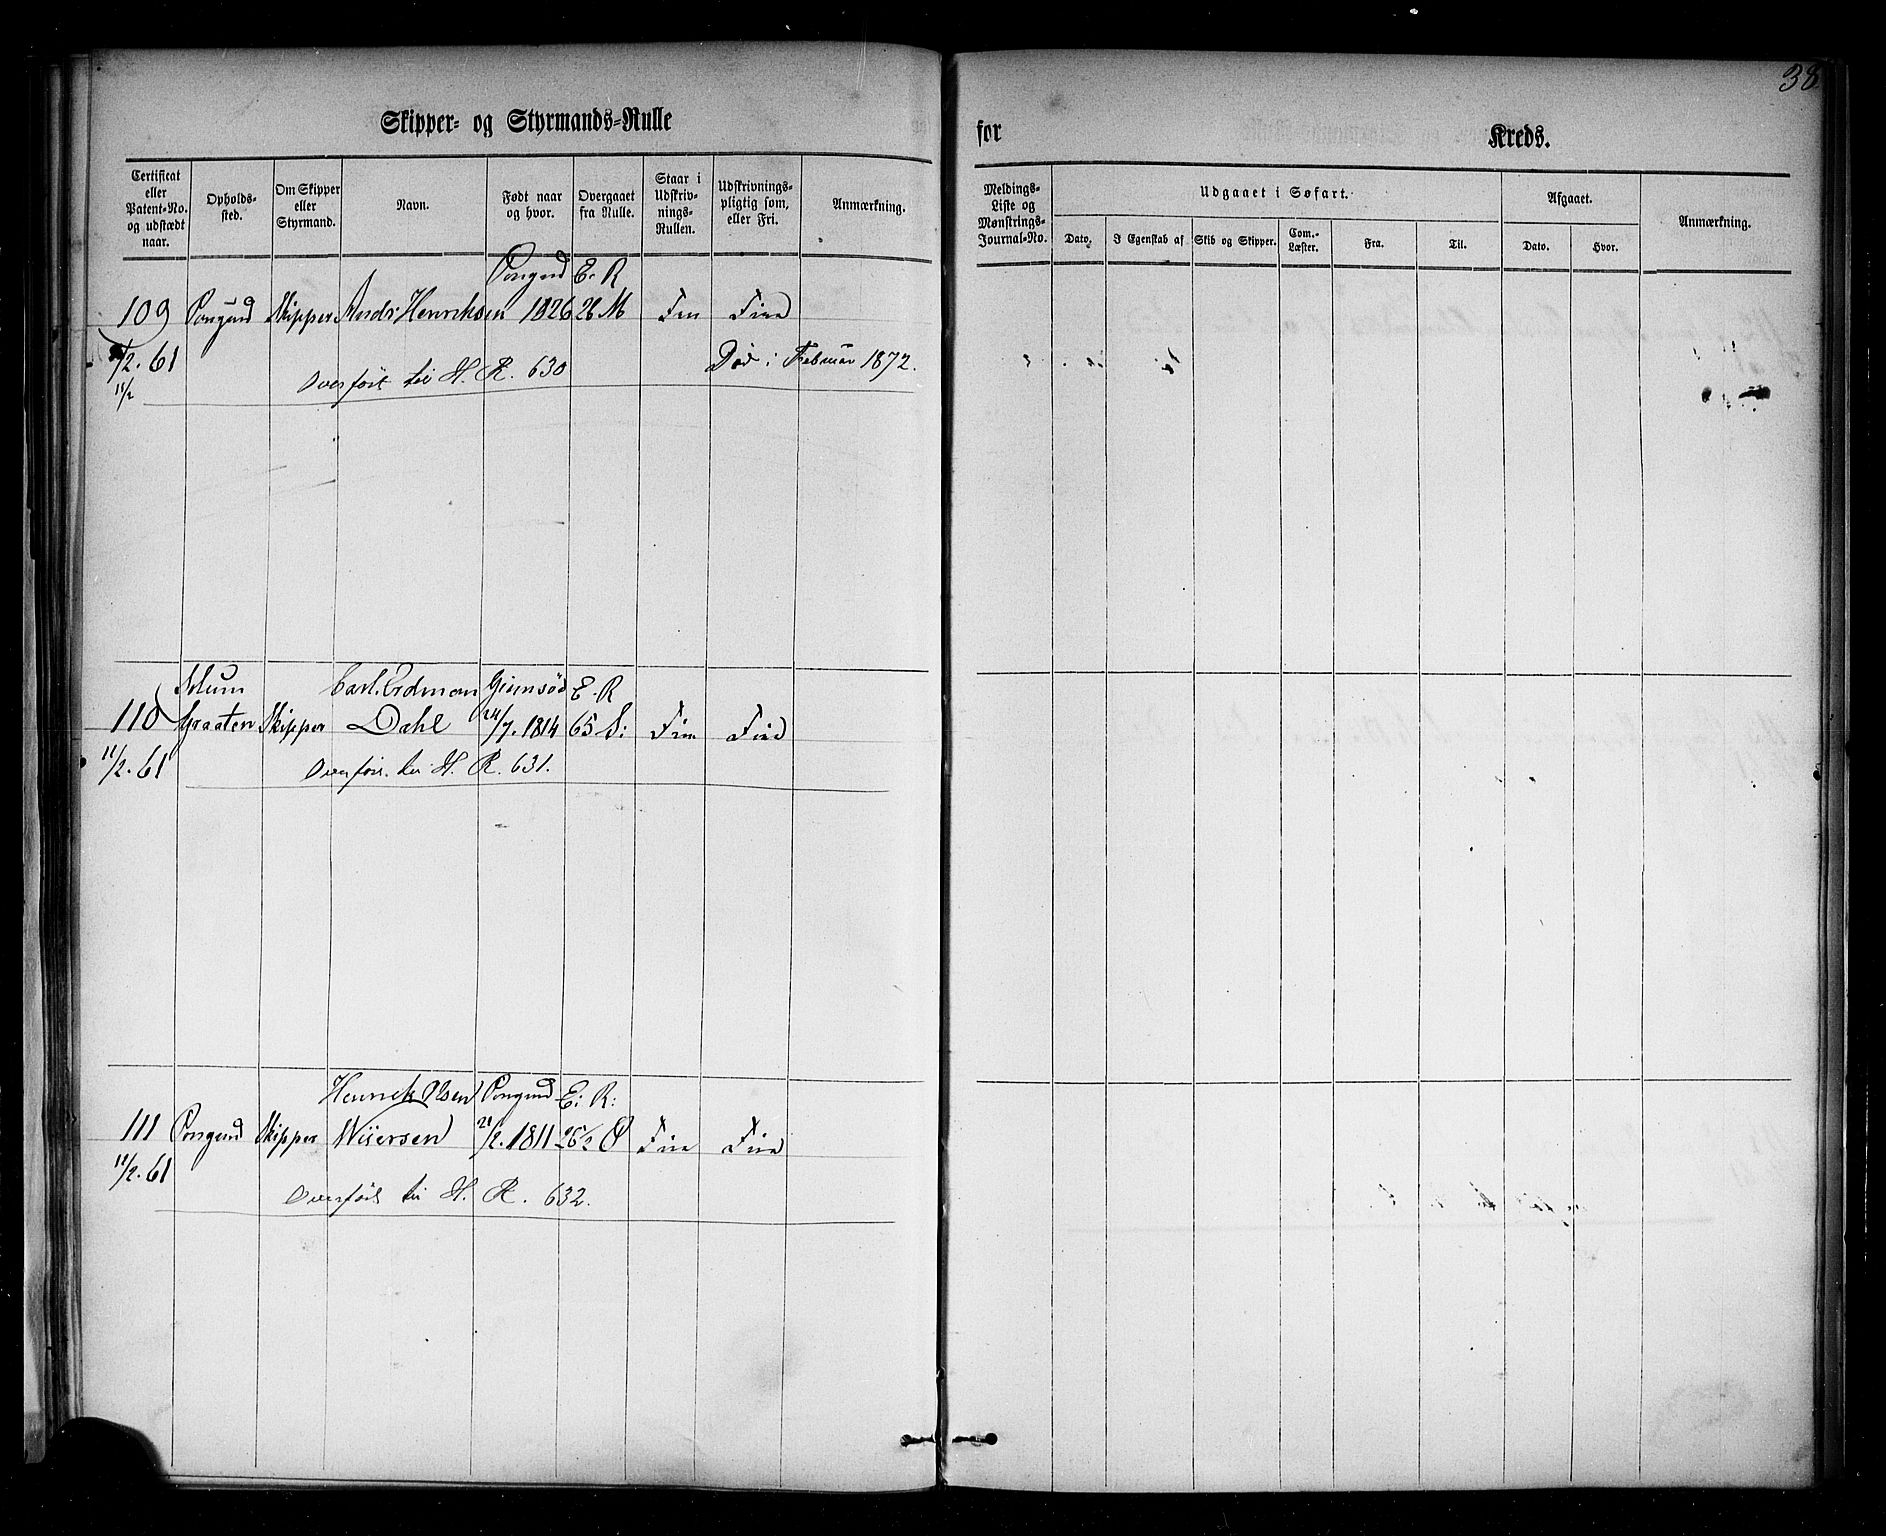 38
Skipper- og Styrmands-Rulle
for Kreds.
Certificat eller Patent-No. og udstædt naar.
Opholds-sted.
Om Skipper eller Styrmand.
Navn.
Født naar og hvor.
Overgaaet fra Rulle.
Staar i Udskriv-nings-Rullen.
Udskrivnings-pligtig som, eller Fri.
Anmærkning.
Meldings-Liste og Mønstrings-Journal-No.
Udgaaet i Søfart.
Dato.
I Egenskab af
Skib og Skipper.
Com.-Læster.
Fra.
Til.
Afgaaet.
Dato.
Hvor.
Anmærkning.
Porsgrund E. R
109 Porsgrund Skipper Henriksen 1826 26 M Frie Frie
/2. 61 Død i Februar 1872.
11/2 Overført til H. R. 630
Solum Carl Erdman Gimsöe E. R
110 Graaten Skipper Dahl 24/7. 1814 65 S: Frie Frie
11/2. 61 Overført til H. R. 631.
Henrik Olsen Porsgrund E: R:
111 Porsgrund Skipper Wiiersen /2. 1811 P Frie Frie
11/2. 61
Overført til H. R. 632.